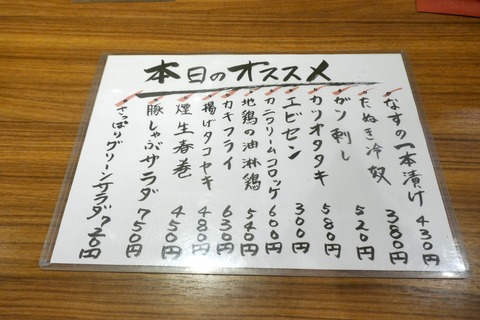 本日のオススメ
なすの一本漬け 430円
たぬき冷奴 380円
ガツ刺し 520円
カツオタタキ 580円
エビセン 300円
カニクリームコロッケ 600円
地鶏の油淋鶏 540円
カキフライ 630円
揚げタコヤキ 480円
煙生春巻 450円
豚しゃぶサラダ 750円
さっぱりグリーンサラダ 720円